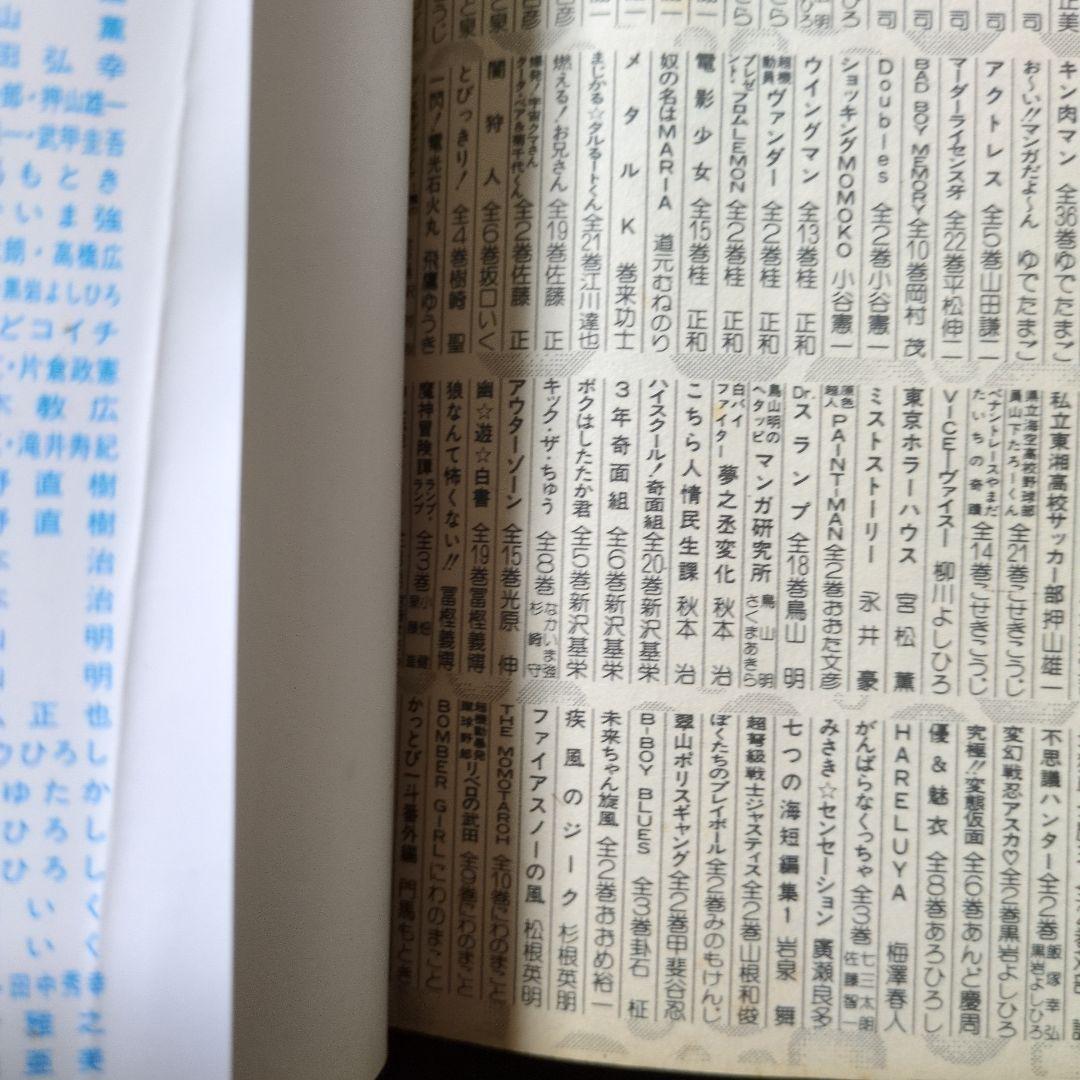 キン肉マン 全36巻 ゆでたまご
お〜い!!マンガだよ〜ん ゆでたまご
アクトレス 全5巻 山田謙二
マーダーライセンス牙 全22巻 平松伸二
BAD BOY MEMORY 全10巻 岡村茂
Doubles 全2巻 小谷憲一
ショッキングMOMOKO 小谷憲一
ウイングマン 全13巻 桂正和
超機動員ヴァンダー 全2巻 桂正和
プレゼント・フロムLEMON 全2巻 桂正和
電影少女 全15巻 桂正和
奴の名はMARIA 道元むねのり
メタルK 巻来功士
まじかる☆タルるートくん 全21巻 江川達也
燃える!お兄さん 全19巻 佐藤正
爆発!宇宙クマさん 全2巻 佐藤正
闇狩人 全6巻 坂口いく
とびっきり! 全4巻 樹崎聖
一閃!電光石火丸 飛鷹ゆうき
私立東湘高校サッカー部 押山雄一
県立海空高校野球部員山下たろーくん 全21巻 こせきこうじ
ペナントレースやまだたいちの奇蹟 全14巻 こせきこうじ
VICE―ヴァイス― 柳川よしひろ
東京ホラーハウス 宮松薫
ミストストーリー 永井豪
原色超人PAINT-MAN 全2巻 おおた文彦
Dr.スランプ 全18巻 鳥山明
鳥山明のヘタッピマンガ研究所 鳥山明 さくまあきら
白バイファイター夢之丞変化 秋本治
こちら人情民生課 秋本治
ハイスクール!奇面組 全20巻 新沢基栄
3年奇面組 全6巻 新沢基栄
ボクはしたたか君 全5巻 新沢基栄
キック・ザ・ちゅう 全8巻 なかいま強 杉崎守
アウターゾーン 全15巻 光原伸
幽☆遊☆白書 全19巻 冨樫義博
狼なんて怖くない!! 冨樫義博
魔神冒険譚ランプ・ランプ 全3巻 小畑健
不思議ハンター 全2巻 飯塚幸弘 黒岩よしひろ
変幻戦忍アスカ♡ 全2巻 黒岩よしひろ
究極!!変態仮面 全6巻 あんど慶周
優&魅衣 全8巻 あろひろし
HARELUYA 梅澤春人
がんばらなくっちゃ 全3巻 七三太朗 佐藤智一
みさき☆センセーション 廣瀬良多
七つの海短編集1 岩泉舞
超弩級戦士ジャスティス 全2巻 山根和俊
ぼくたちのプレイボール 全2巻 みのもけんじ
翠山ポリスギャング 全2巻 甲斐谷忍
B-BOY BLUES 全3巻 卦石柾
未来ちゃん旋風 全2巻 おおめ裕一
疾風のジーク 杉根英朋
ファイアスノーの風 松根英明
THE MOMOTAROH 全10巻 にわのまこと
超機動暴発蹴球野郎リベロの武田 全9巻 にわのまこと
BOMBER GIRL にわのまこと
かっとび一斗番外編 門馬もとき
田弘幸
郎・押山雄一
一・武甲圭吾
もとき
いま強
朗・高橋広
黒岩よしひろ
どコイチ
・片倉政憲
教広
・滝井寿紀
野直樹
野直樹
治
治
明
明
正也
ウひろし
ゆたか
ひろし
ひろし
いく
いく
田中秀幸
雄之